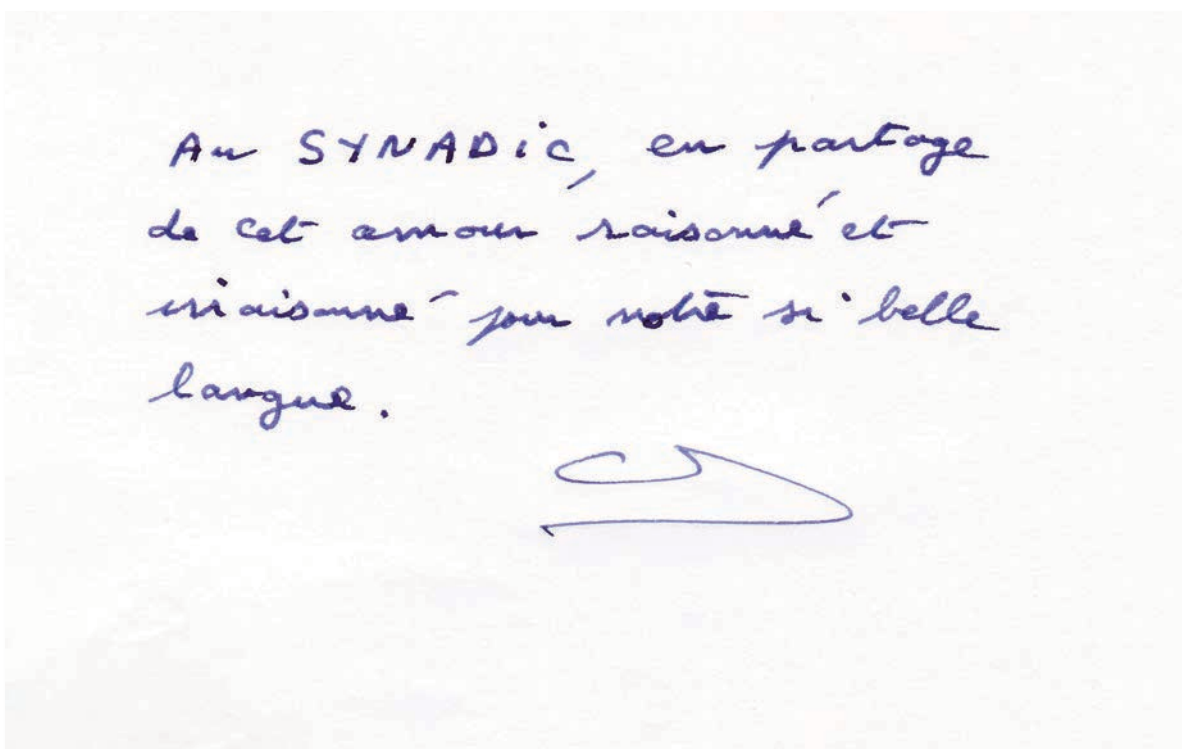 Au SYNADiC, en partage
de cet amour raisonné et
irraisonné pour notre si belle
langue.